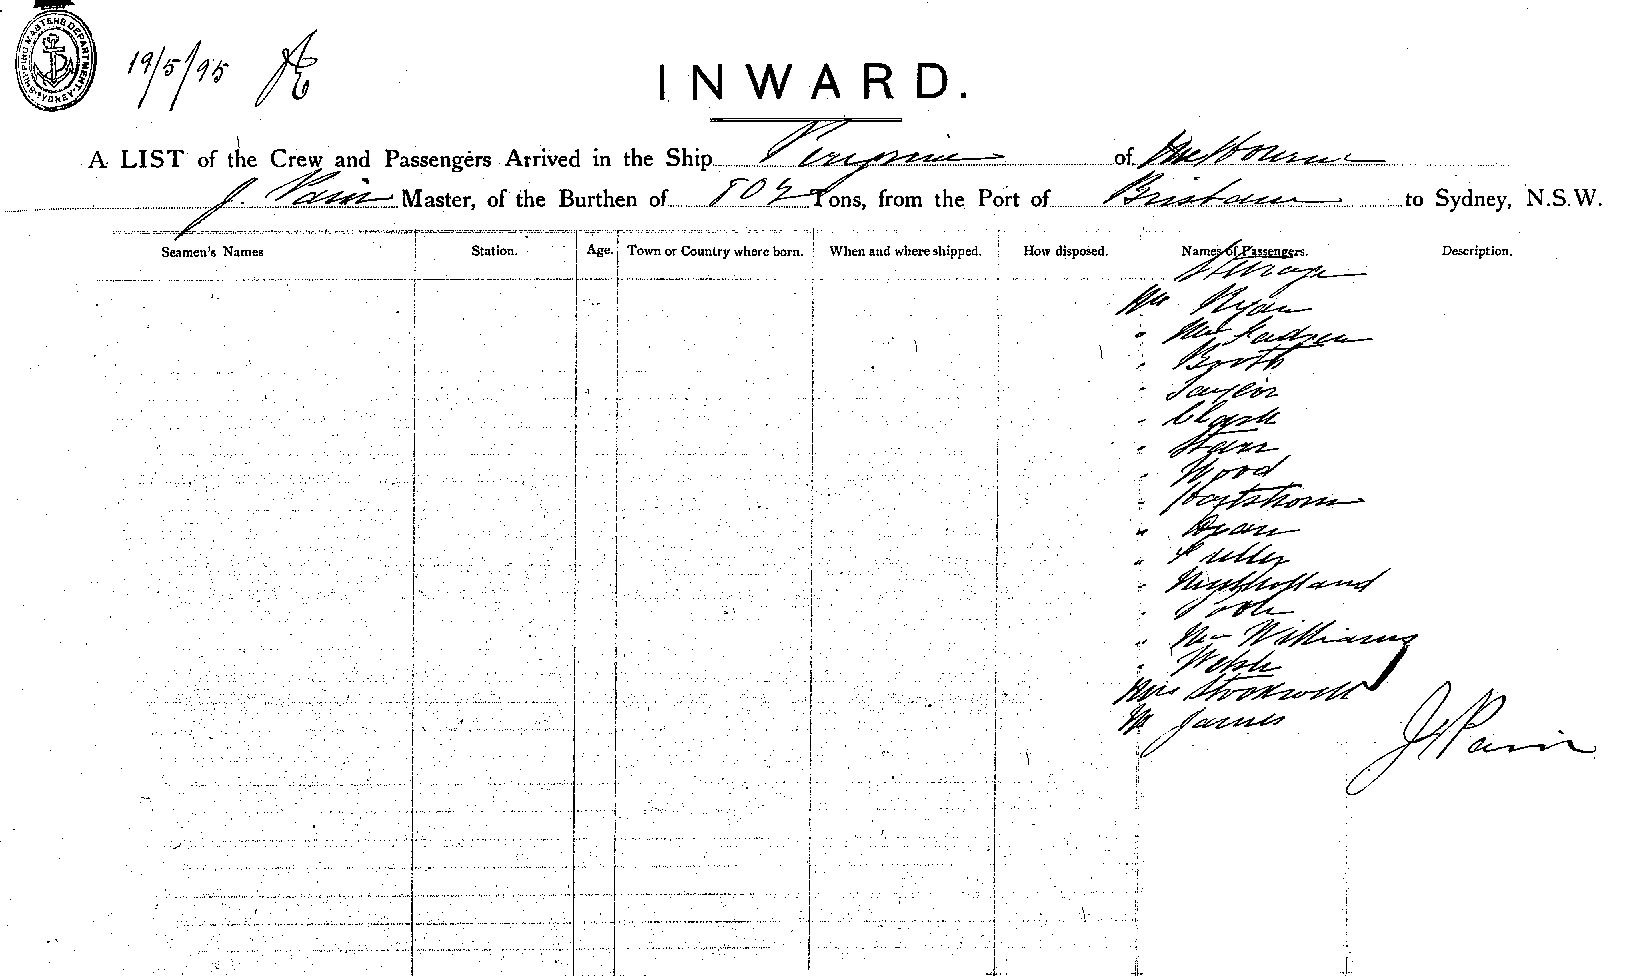 SHIPPING MASTERS DEPARTMENT SYDNEY
19/5/95
INWARD.
A LIST of the Crew and Passengers Arrived in the Ship Peregrine of Melbourne
J. Pain Master, of the Burthen of Tons, from the Port of Brisbane to Sydney, N.S.W.
Seamen's Names Station. Age. Town or Country where born. When and where shipped. How disposed. Names of Passengers. Description.
Steerage
Mr Ryan
" Mrs
" Booth
" Taylor
" Clark
" Starr
" Wood
" Hartshorn
" Dean
" Fuller
" Poole
" Mrs Williams
" Welsh
Mrs Stockwell
Mr James
J Pain